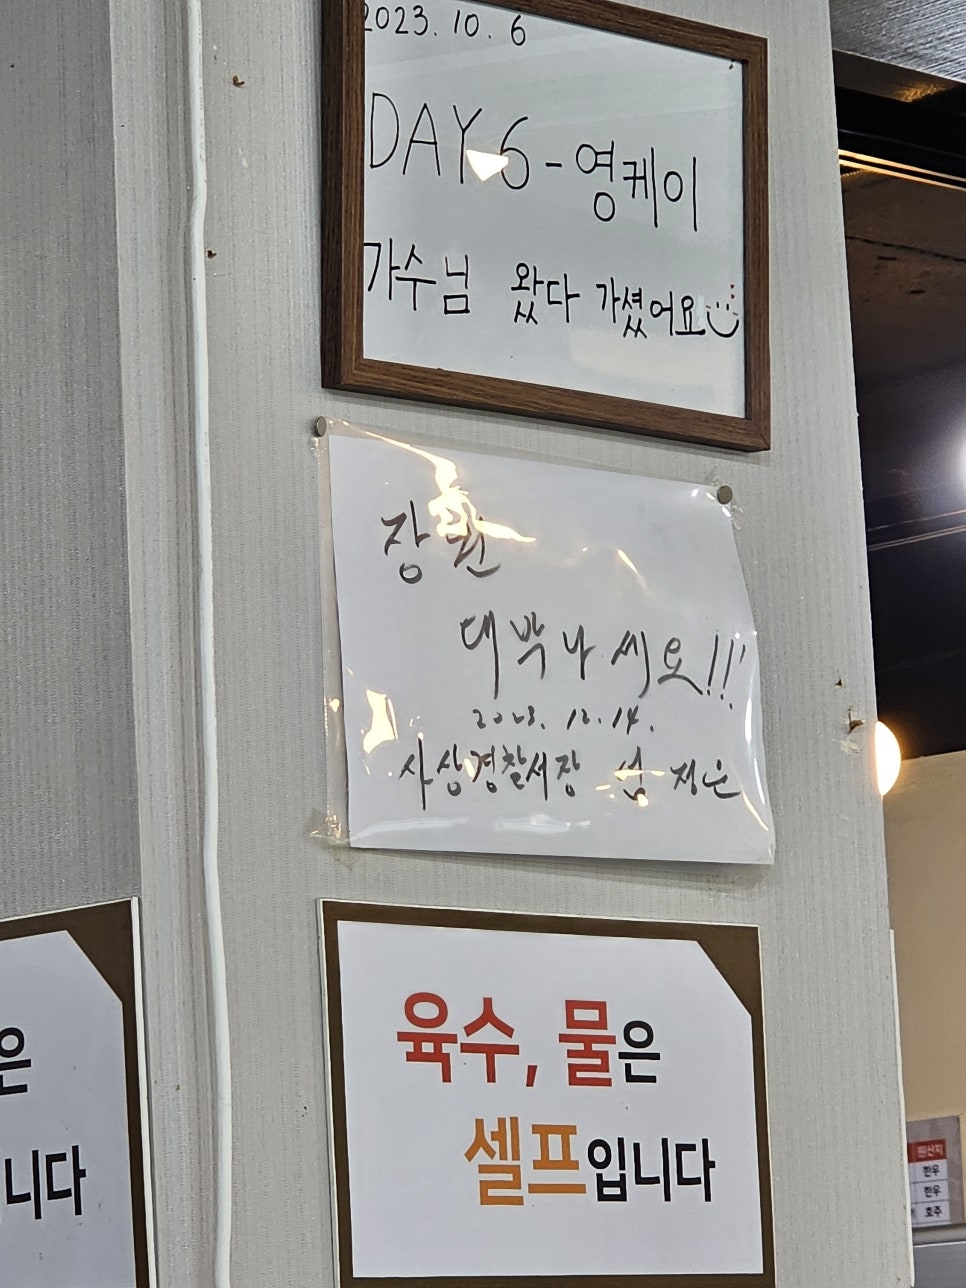 2023. 10. 6
DAY 6 - 영케이
가수님 왔다 가셨어요
대박나씨요!!!
2023. 12. 14.
사상경찰서장
육수, 물은
셀프입니다
은
니다
원산지
한우
한우
호주